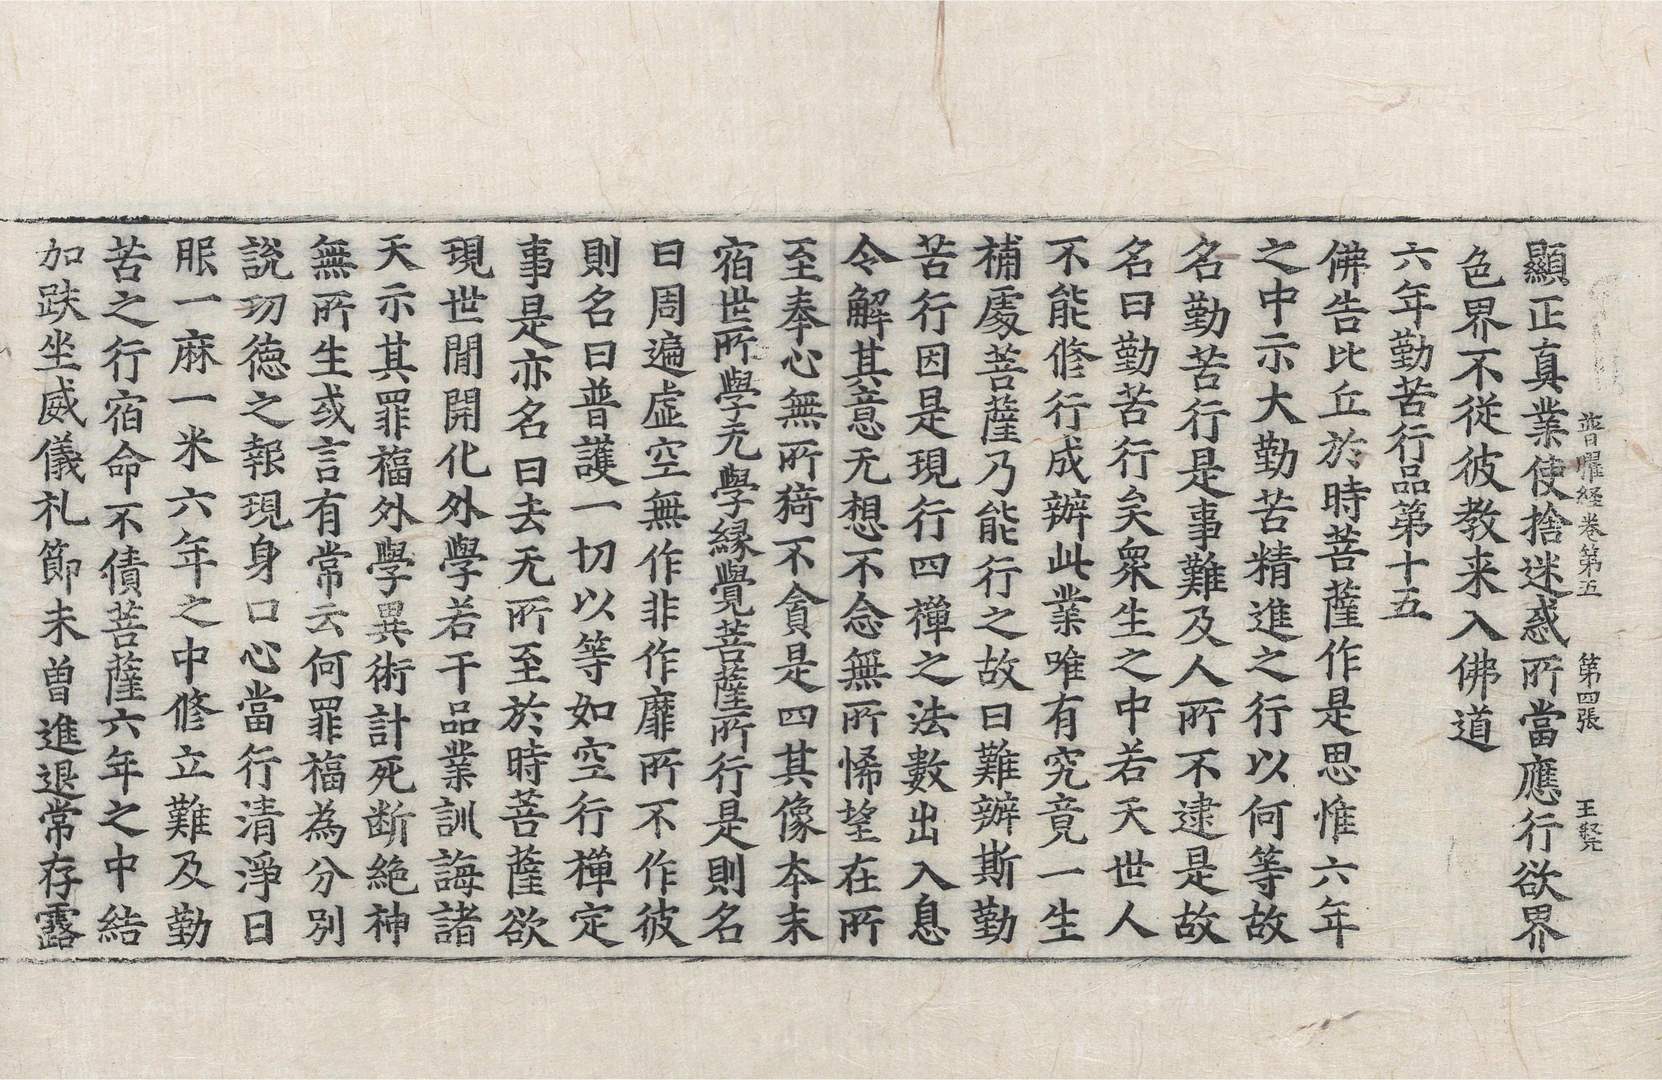 普曜経卷第五 第四張 王堅
顯正真業使捨迷惑所當應行欲界
色界不從彼教来入佛道
六年勤苦行品第十五
佛告比丘於時菩薩作是思惟六年
之中示大勤苦精進之行以何等故
名勤苦行是事難及人所不逮是故
名曰勤苦行矣衆生之中若天世人
不能修行成辦此業唯有究竟一生
補處菩薩乃能行之故曰難辦斯勤
苦行因是現行四禪之法數出入息
令解其意无想不念無所悕望在所
至奉心無所猗不貪是四其像本末
宿世所學无學緣覺菩薩所行是則名
曰周遍虛空無作非作靡所不作彼
則名曰普護一切以等如空行禪定
事是亦名曰去无所至於時菩薩欲
現世間開化外學若干品業訓誨諸
天示其罪福外學異術計死断絶神
無所生或言有常云何罪福為分別
說功德之報現身口心當行清淨日
服一麻一米六年之中修立難及勤
苦之行宿命不債菩薩六年之中結
加趺坐威儀礼節未曾進退常存露